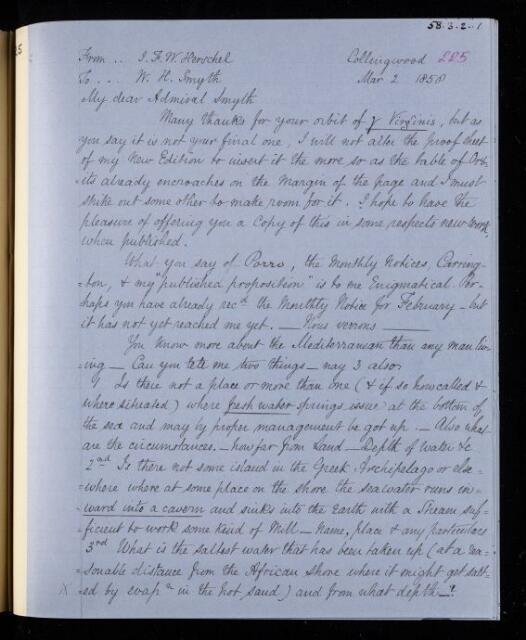 58.3.2.1
From .. J.F.W. Herschel Collingwood 225
To .... W. H. Smyth Mar 2 1858
My dear Admiral Smyth
Many thanks for your orbit of γ Virginis, but as
you say it is not your final one, I will not alter the proof sheet
of my New Edition to insert it the more so as the table of Orb-
its already encroaches on the Margin of the page and I must
strike out some other to make room for it. I hope to have the
pleasure of offering you a Copy of this in some respects new work,
when published.
What you say of Porro, the Monthly Notices, Carring-
-ton, & my "published proposition" is to me Enigmatical. Per-
haps you have already recd the Monthly Notice for February - but
it has not yet reached me yet. — Nous verrons —
You know more about the Mediterranean than any man liv-
-ing — Can you tell me two things — nay 3 also:
Is there not a place or more than one (& if so how called &
where situated) where fresh water springs issue at the bottom of
the sea and may by proper management be got up. — Also what
are the circumstances. — how far from Land — Depth of Water &c
2nd Is there not some island in the Greek Archipelago or else=
=where where at some place on the shore the seawater runs in=
=ward into a cavern and sinks into the Earth with a Stream suf=
=ficient to work some kind of Mill — Name, place & any particulars
3rd What is the saltest water that has been taken up (at a rea=
=sonable distance from the African shore where it might get salt=
X =ed by evapn in the hot sand) and from what depth —?